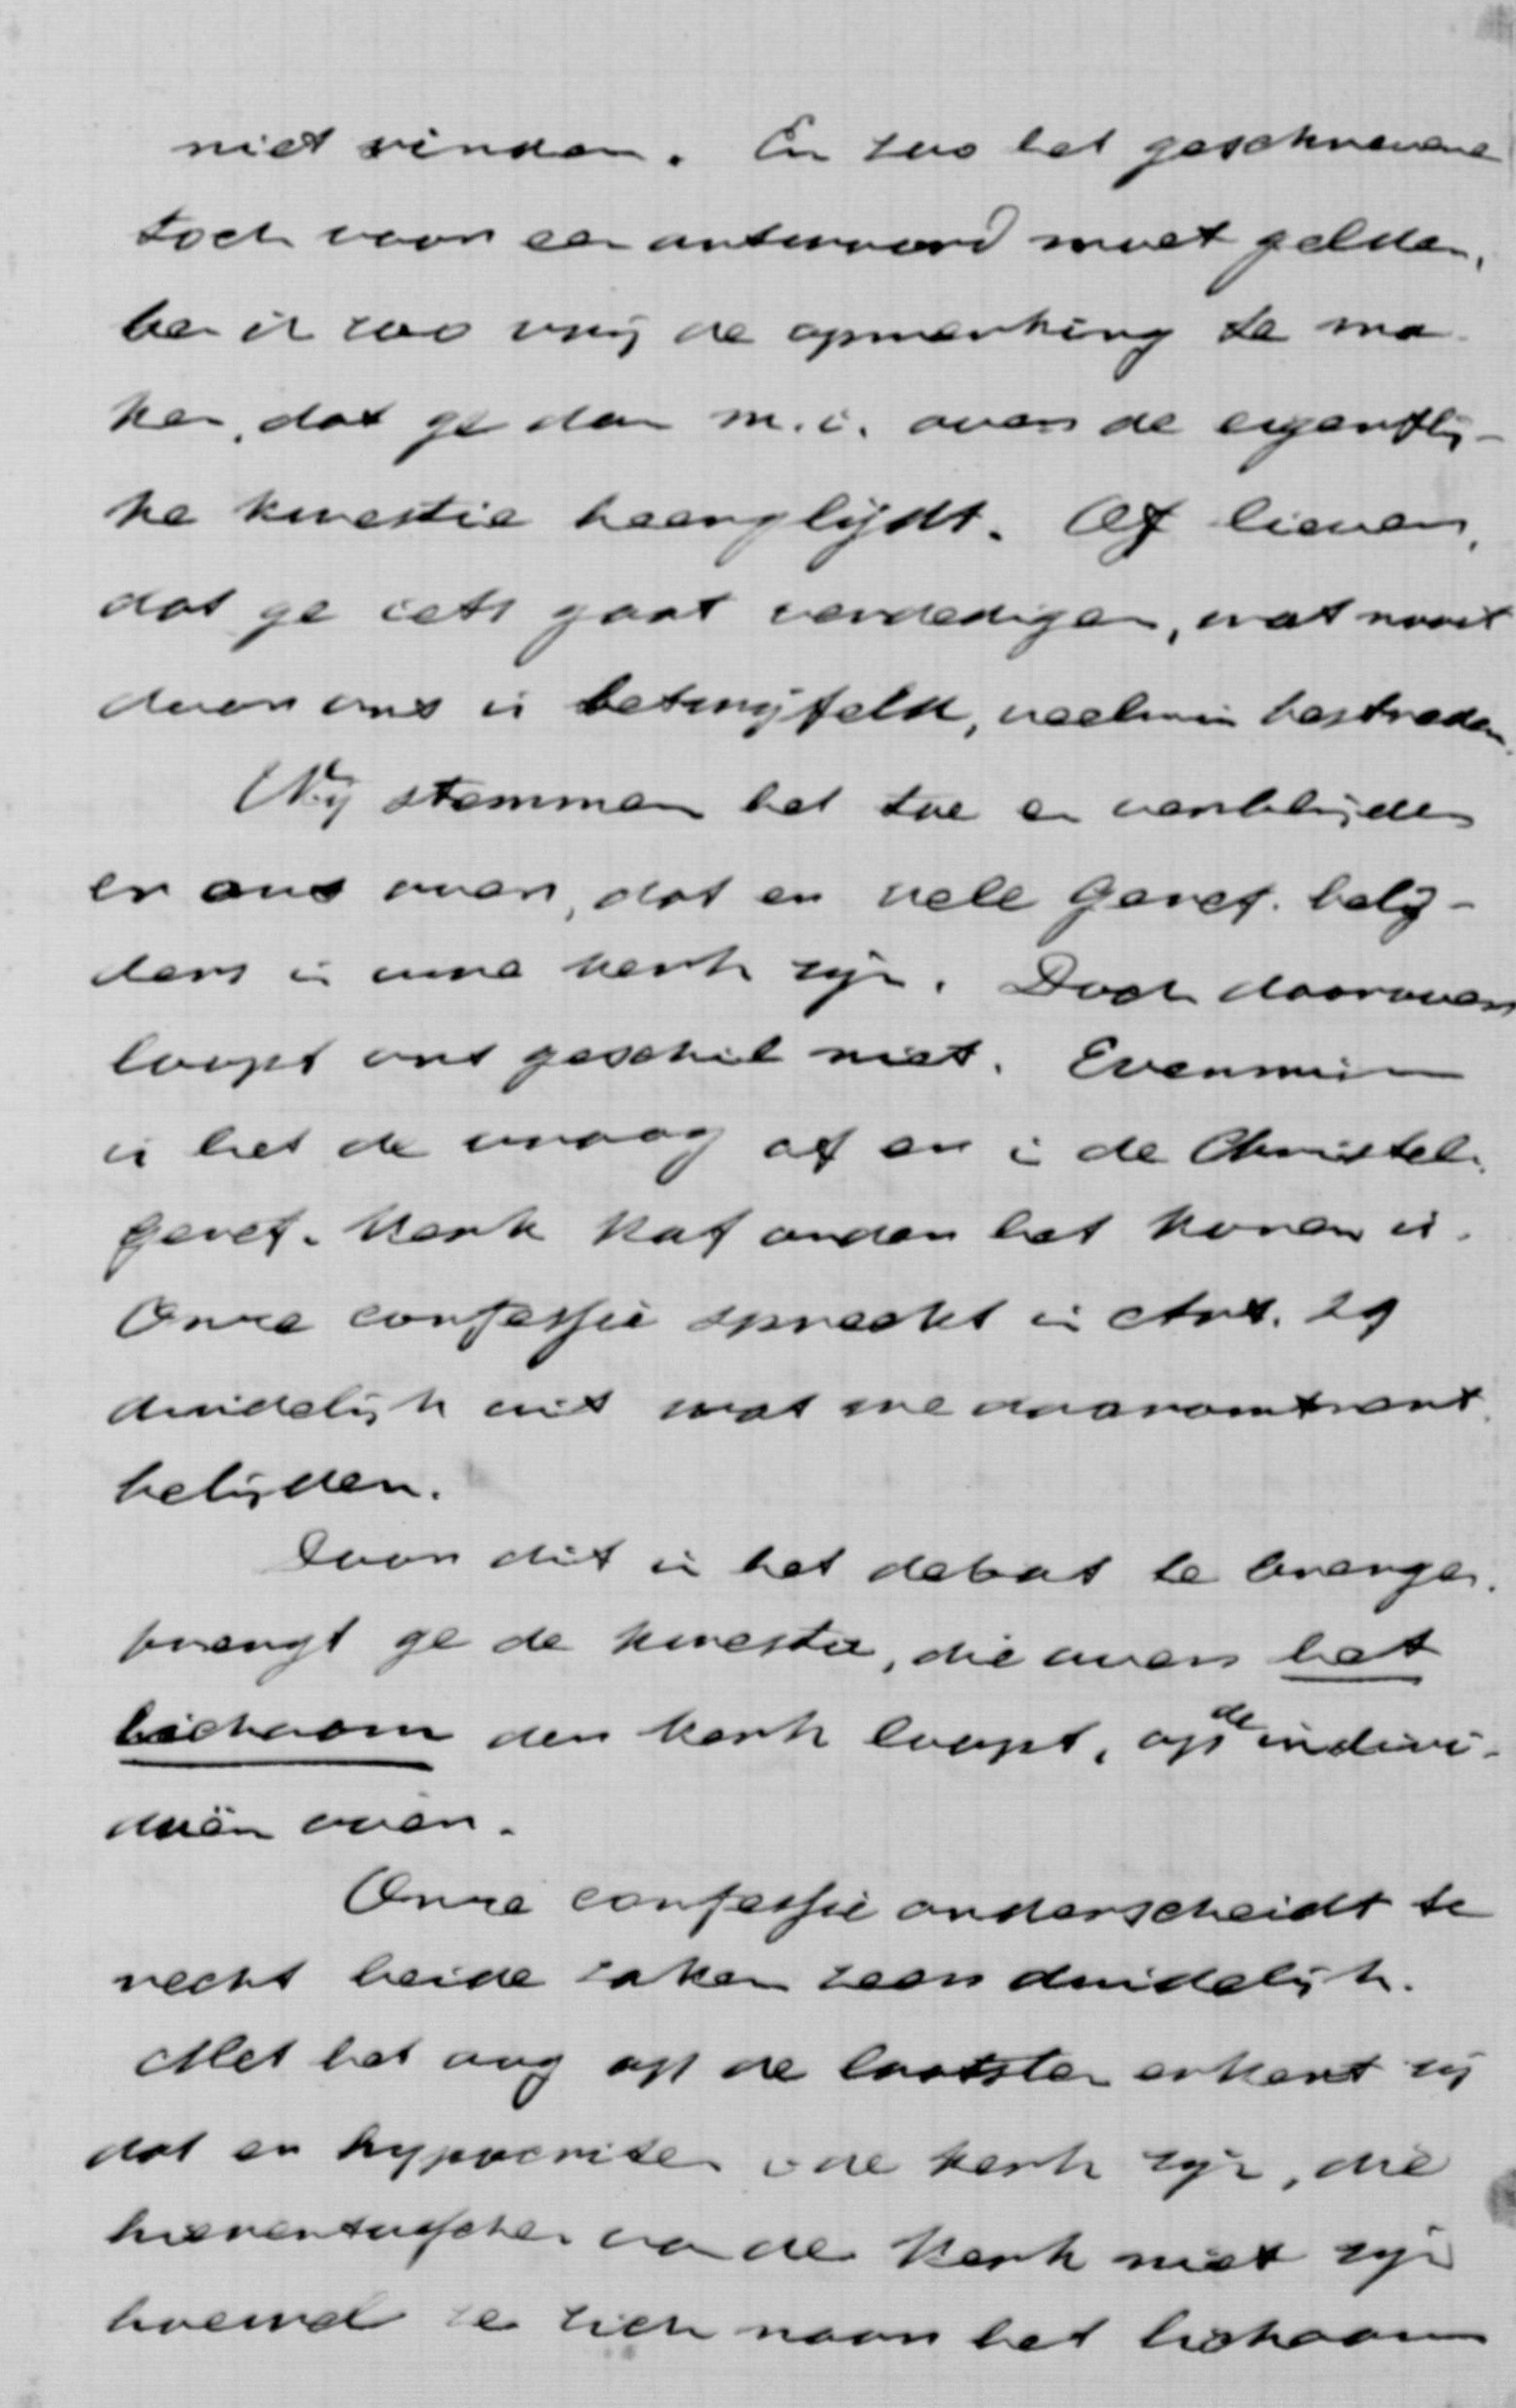 niet vinden. En zoo het geschrevene
toch voor een antwoord moet gelden,
ben ik zoo vrij de opmerking te ma-
ken, dat ge dan m.i. over de eigentlij-
ke kwestie heenglijdt. Of liever,
dat ge iets gaat verdedigen, wat nooit
door ons is betwijfeld, veelmin bestreden.
Wij stemmen het toe en verblijden
er ons over, dat er vele Geref. belij-
ders in uwe kerk zijn. Doch daarover
loopt ons geschil niet. Evenmin
is het de vraag of er in de Christel.
Geref. Kerk kaf onder het koren is.
Onze confessie spreekt in Art. 29
duidelijk uit wat we daaromtrent
belijden.
Door dit in het debat te brengen,
brengt ge de kwestie, die over het
lichaam der kerk loopt, op de indivi-
duën over.
Onze confessie onderscheidt te
recht beide zaken zeer duidelijk.
Met het oog op de laatsten erkent zij
dat er hypocriten in de kerk zijn, die
hierentusschen van de Kerk niet zijn
hoewel ze zich naar het lichaam